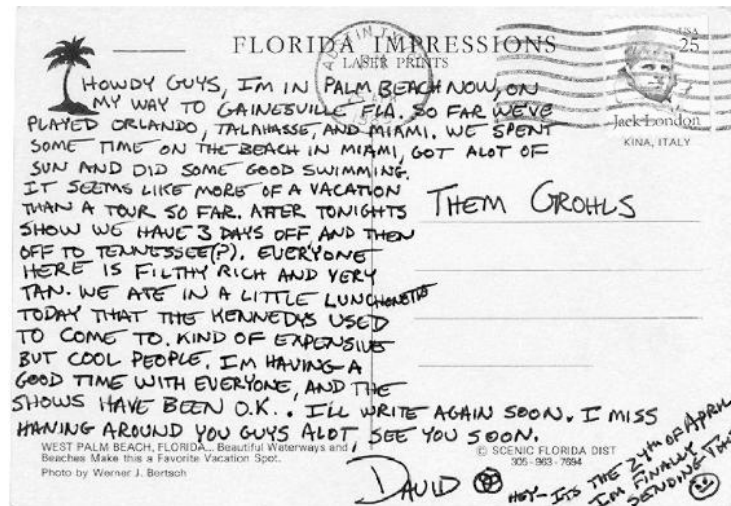 FLORIDA IMPRESSIONS
LASER PRINTS
AUSTIN TX
USA
25
Jack London
KINA, ITALY
HOWDY GUYS, I'M IN PALM BEACH NOW, ON
MY WAY TO GAINESVILLE FLA. SO FAR WE'VE
PLAYED ORLANDO, TALAHASSE, AND MIAMI. WE SPENT
SOME TIME ON THE BEACH IN MIAMI, GOT ALOT OF
SUN AND DID SOME GOOD SWIMMING.
IT SEEMS LIKE MORE OF A VACATION
THAN A TOUR SO FAR. AFTER TONIGHTS
SHOW WE HAVE 3 DAYS OFF AND THEN
OFF TO TENNESSEE(?). EVERYONE
HERE IS FILTHY RICH AND VERY
TAN. WE ATE IN A LITTLE LUNCHONETTE
TODAY THAT THE KENNEDYS USED
TO COME TO. KIND OF EXPENSIVE
BUT COOL PEOPLE. I'M HAVING A
GOOD TIME WITH EVERYONE, AND THE
SHOWS HAVE BEEN O.K.. I'LL WRITE AGAIN SOON. I MISS
HANING AROUND YOU GUYS ALOT, SEE YOU SOON.
DAVID
THEM GROHLS
HEY- ITS THE 24th OF APRIL
I'M FINALLY
SENDING THAT
WEST PALM BEACH, FLORIDA... Beautiful Waterways and
Beaches Make this a Favorite Vacation Spot.
Photo by Werner J. Bertsch
© SCENIC FLORIDA DIST
305-963-7694